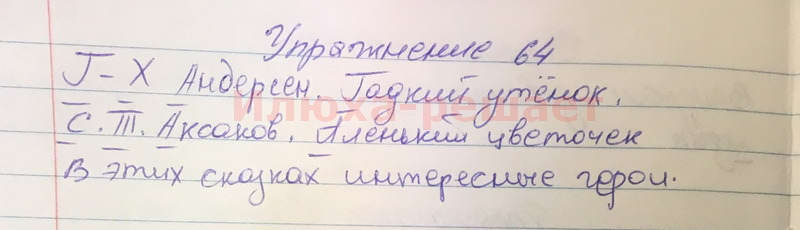 Упражнение 64
Г-Х Андерсен. Гадкий утёнок.
С.Т. Аксаков. Аленький цветочек
В этих сказках интересные герои.
Илюха-решает